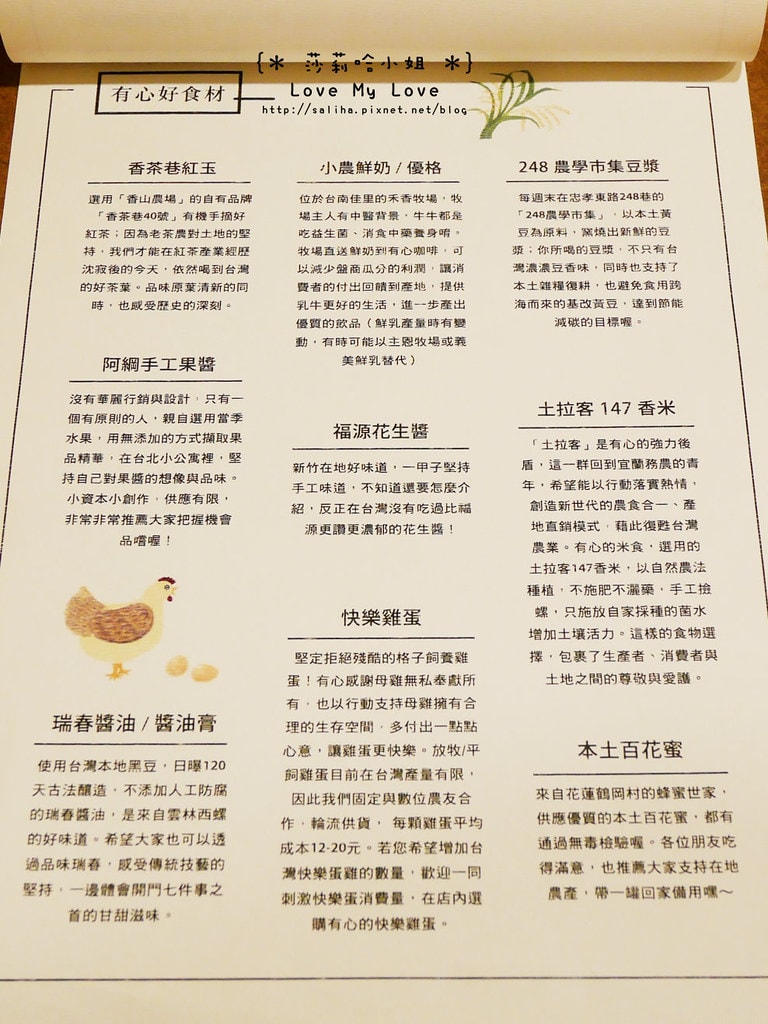 {* 莎莉哈小姐 *}
Love My Love
http://saliha.pixnet.net/blog
有心好食材
香茶巷紅玉
選用「香山農場」的自有品牌
「香茶巷40號」有機手摘好
紅茶；因為老茶農對土地的堅
持，我們才能在紅茶產業經歷
沈寂後的今天，依然喝到台灣
的好茶葉。品味原葉清新的同
時，也感受歷史的深刻。
阿綱手工果醬
沒有華麗行銷與設計，只有一
個有原則的人，親自選用當季
水果，用無添加的方式擷取果
品精華，在台北小公寓裡，堅
持自己對果醬的想像與品味。
小資本小創作，供應有限，
非常非常推薦大家把握機會
品嚐喔！
瑞春醬油 / 醬油膏
使用台灣本地黑豆，日曝120
天古法釀造，不添加人工防腐
的瑞春醬油，是來自雲林西螺
的好味道。希望大家也可以透
過品味瑞春，感受傳統技藝的
堅持，一邊體會開門七件事之
首的甘甜滋味。
小農鮮奶 / 優格
位於台南佳里的禾香牧場，牧
場主人有中醫背景，牛牛都是
吃益生菌、消食中藥養身唷。
牧場直送鮮奶到有心咖啡，可
以減少盤商瓜分的利潤，讓消
費者的付出回饋到產地，提供
乳牛更好的生活，進一步產出
優質的飲品（鮮乳產量時有變
動，有時可能以主恩牧場或義
美鮮乳替代）
福源花生醬
新竹在地好味道，一甲子堅持
手工味道，不知道還要怎麼介
紹，反正在台灣沒有吃過比福
源更讚更濃郁的花生醬！
快樂雞蛋
堅定拒絕殘酷的格子飼養雞
蛋！有心感謝母雞無私奉獻所
有，也以行動支持母雞擁有合
理的生存空間，多付出一點點
心意，讓雞蛋更快樂。放牧/平
飼雞蛋目前在台灣產量有限，
因此我們固定與數位農友合
作，輪流供貨， 每顆雞蛋平均
成本12-20元。若您希望增加台
灣快樂蛋雞的數量，歡迎一同
刺激快樂蛋消費量，在店內選
購有心的快樂雞蛋。
248 農學市集豆漿
每週末在忠孝東路248巷的
「248農學市集」，以本土黃
豆為原料，窯燒出新鮮的豆
漿；你所喝的豆漿，不只有台
灣濃濃豆香味，同時也支持了
本土雜糧復耕，也避免食用跨
海而來的基改黃豆，達到節能
減碳的目標喔。
土拉客 147 香米
「土拉客」是有心的強力後
盾，這一群回到宜蘭務農的青
年，希望能以行動落實熱情，
創造新世代的農食合一、產
地直銷模式，藉此復甦台灣
農業。有心的米食，選用的
土拉客147香米，以自然農法
種植，不施肥不灑藥，手工撿
螺，只施放自家採種的菌水
增加土壤活力。這樣的食物選
擇，包裹了生產者、消費者與
土地之間的尊敬與愛護。
本土百花蜜
來自花蓮鶴岡村的蜂蜜世家，
供應優質的本土百花蜜，都有
通過無毒檢驗喔。各位朋友吃
得滿意，也推薦大家支持在地
農產，帶一罐回家備用嘿～